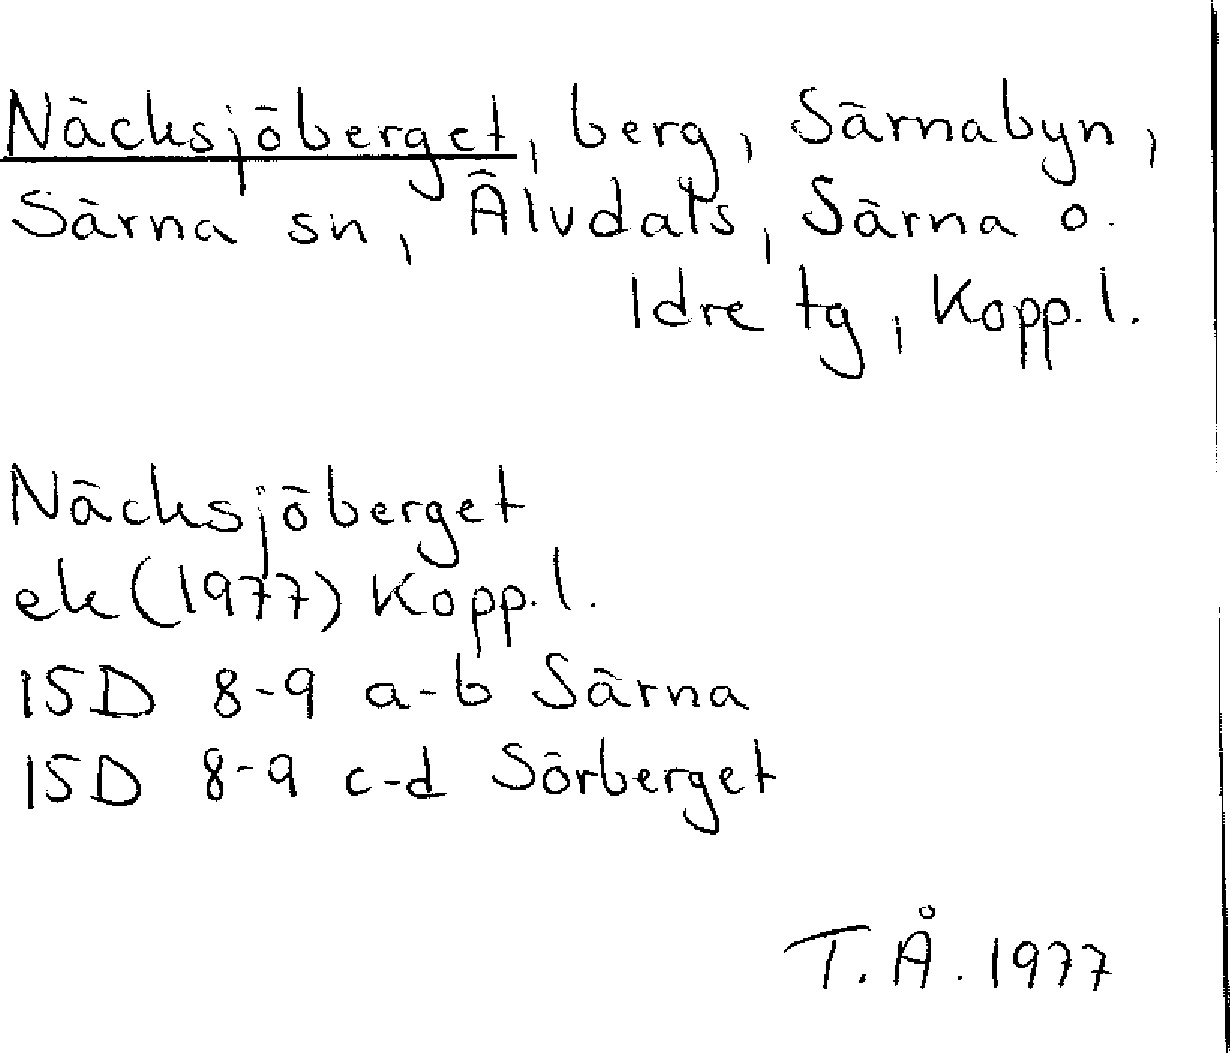 Näcksjöberget, berg, Särnabyn,
Särna sn, Älvdals, Särna o.
Idre tg, Kopp. l.
Näcksjöberget
ek (1977) Kopp. l.
15D 8-9 a-b Särna
15D 8-9 c-d Sörberget
T.Å. 1977